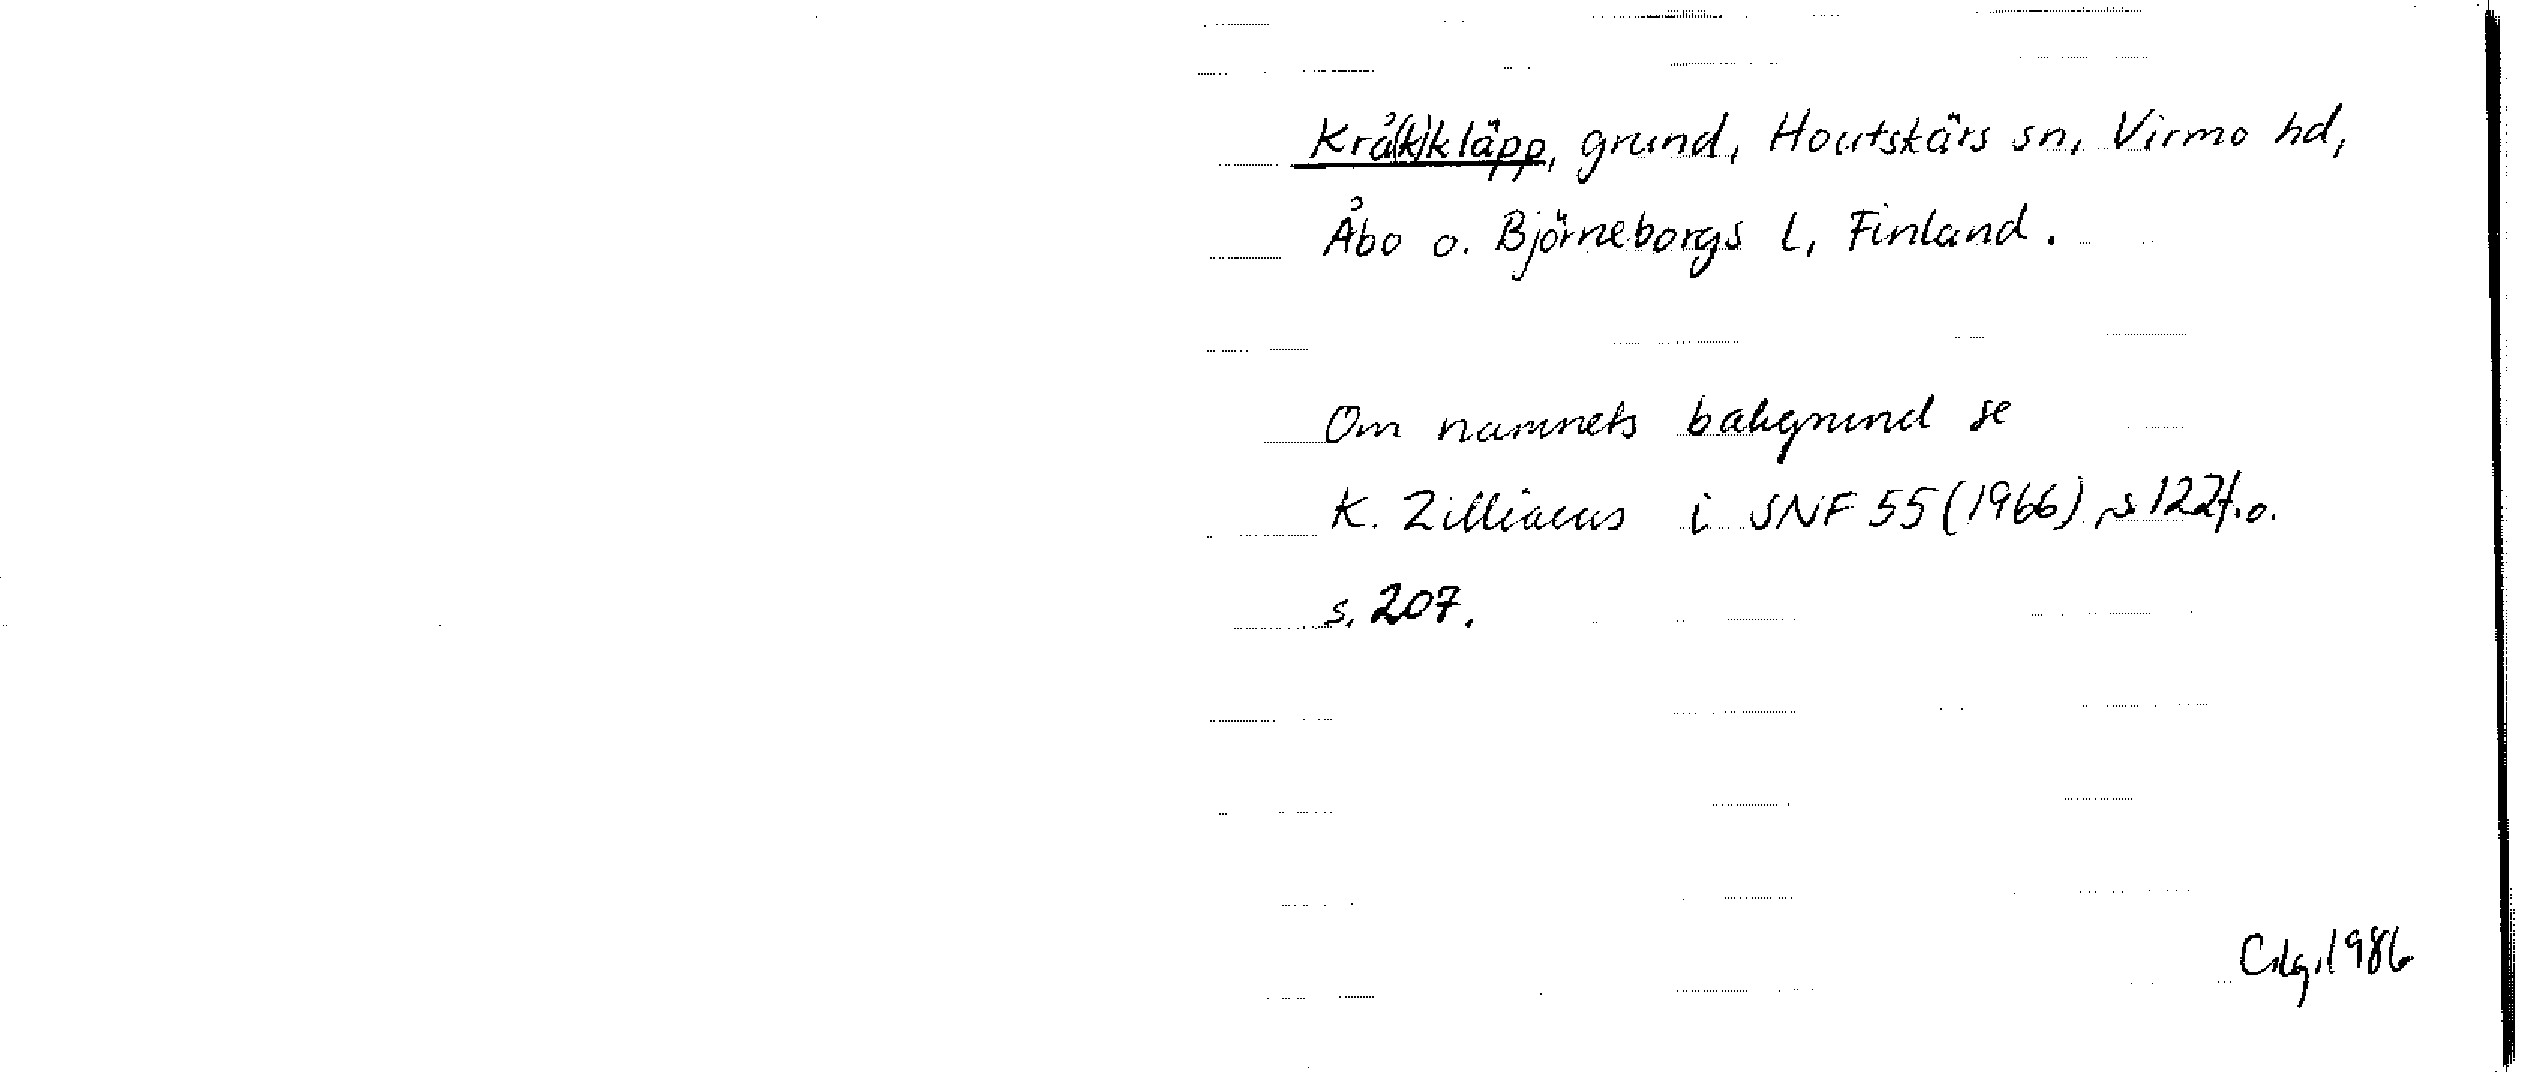 Krå(k)kläpp, grund, Houtskärs sn, Virmo hd,
Åbo o. Björneborgs l, Finland.
Om namnets bakgrund se
K. Zilliacus i SNF 55 (1966), s 122f. o.
s. 207.
1986